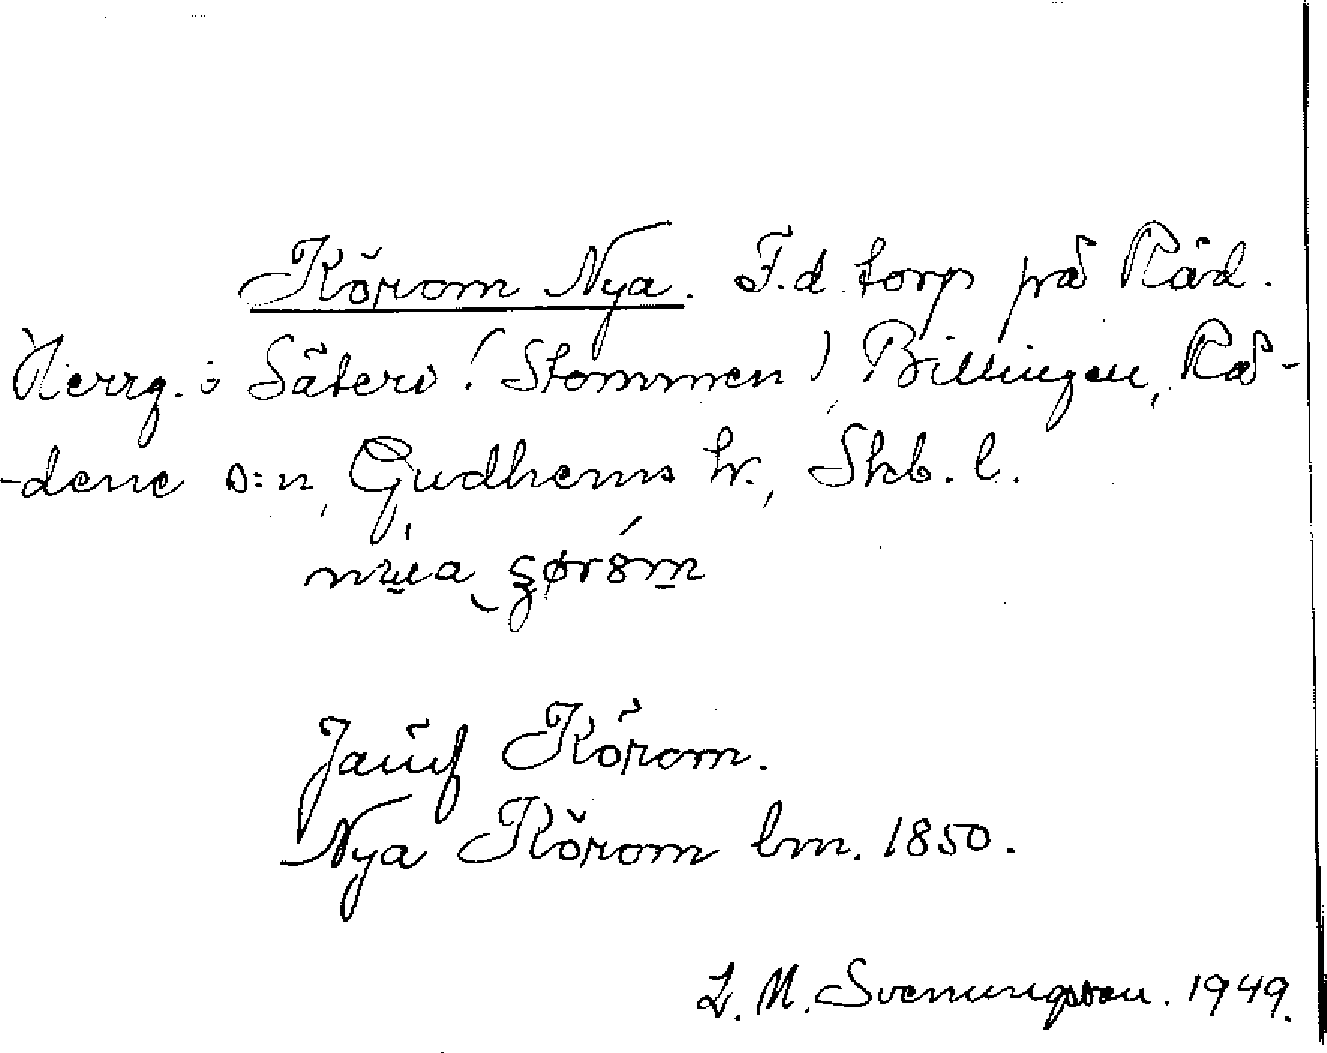 Körom Nya. F.d. torp på Råd.
Herrg. o Säteri (Stommen) Billingen, Rå-
-dene s:n, Gudhems hr., Skb. l.
Jämf Körom.
Nya Körom lm. 1850.
L. M. Svenungsson. 1949.